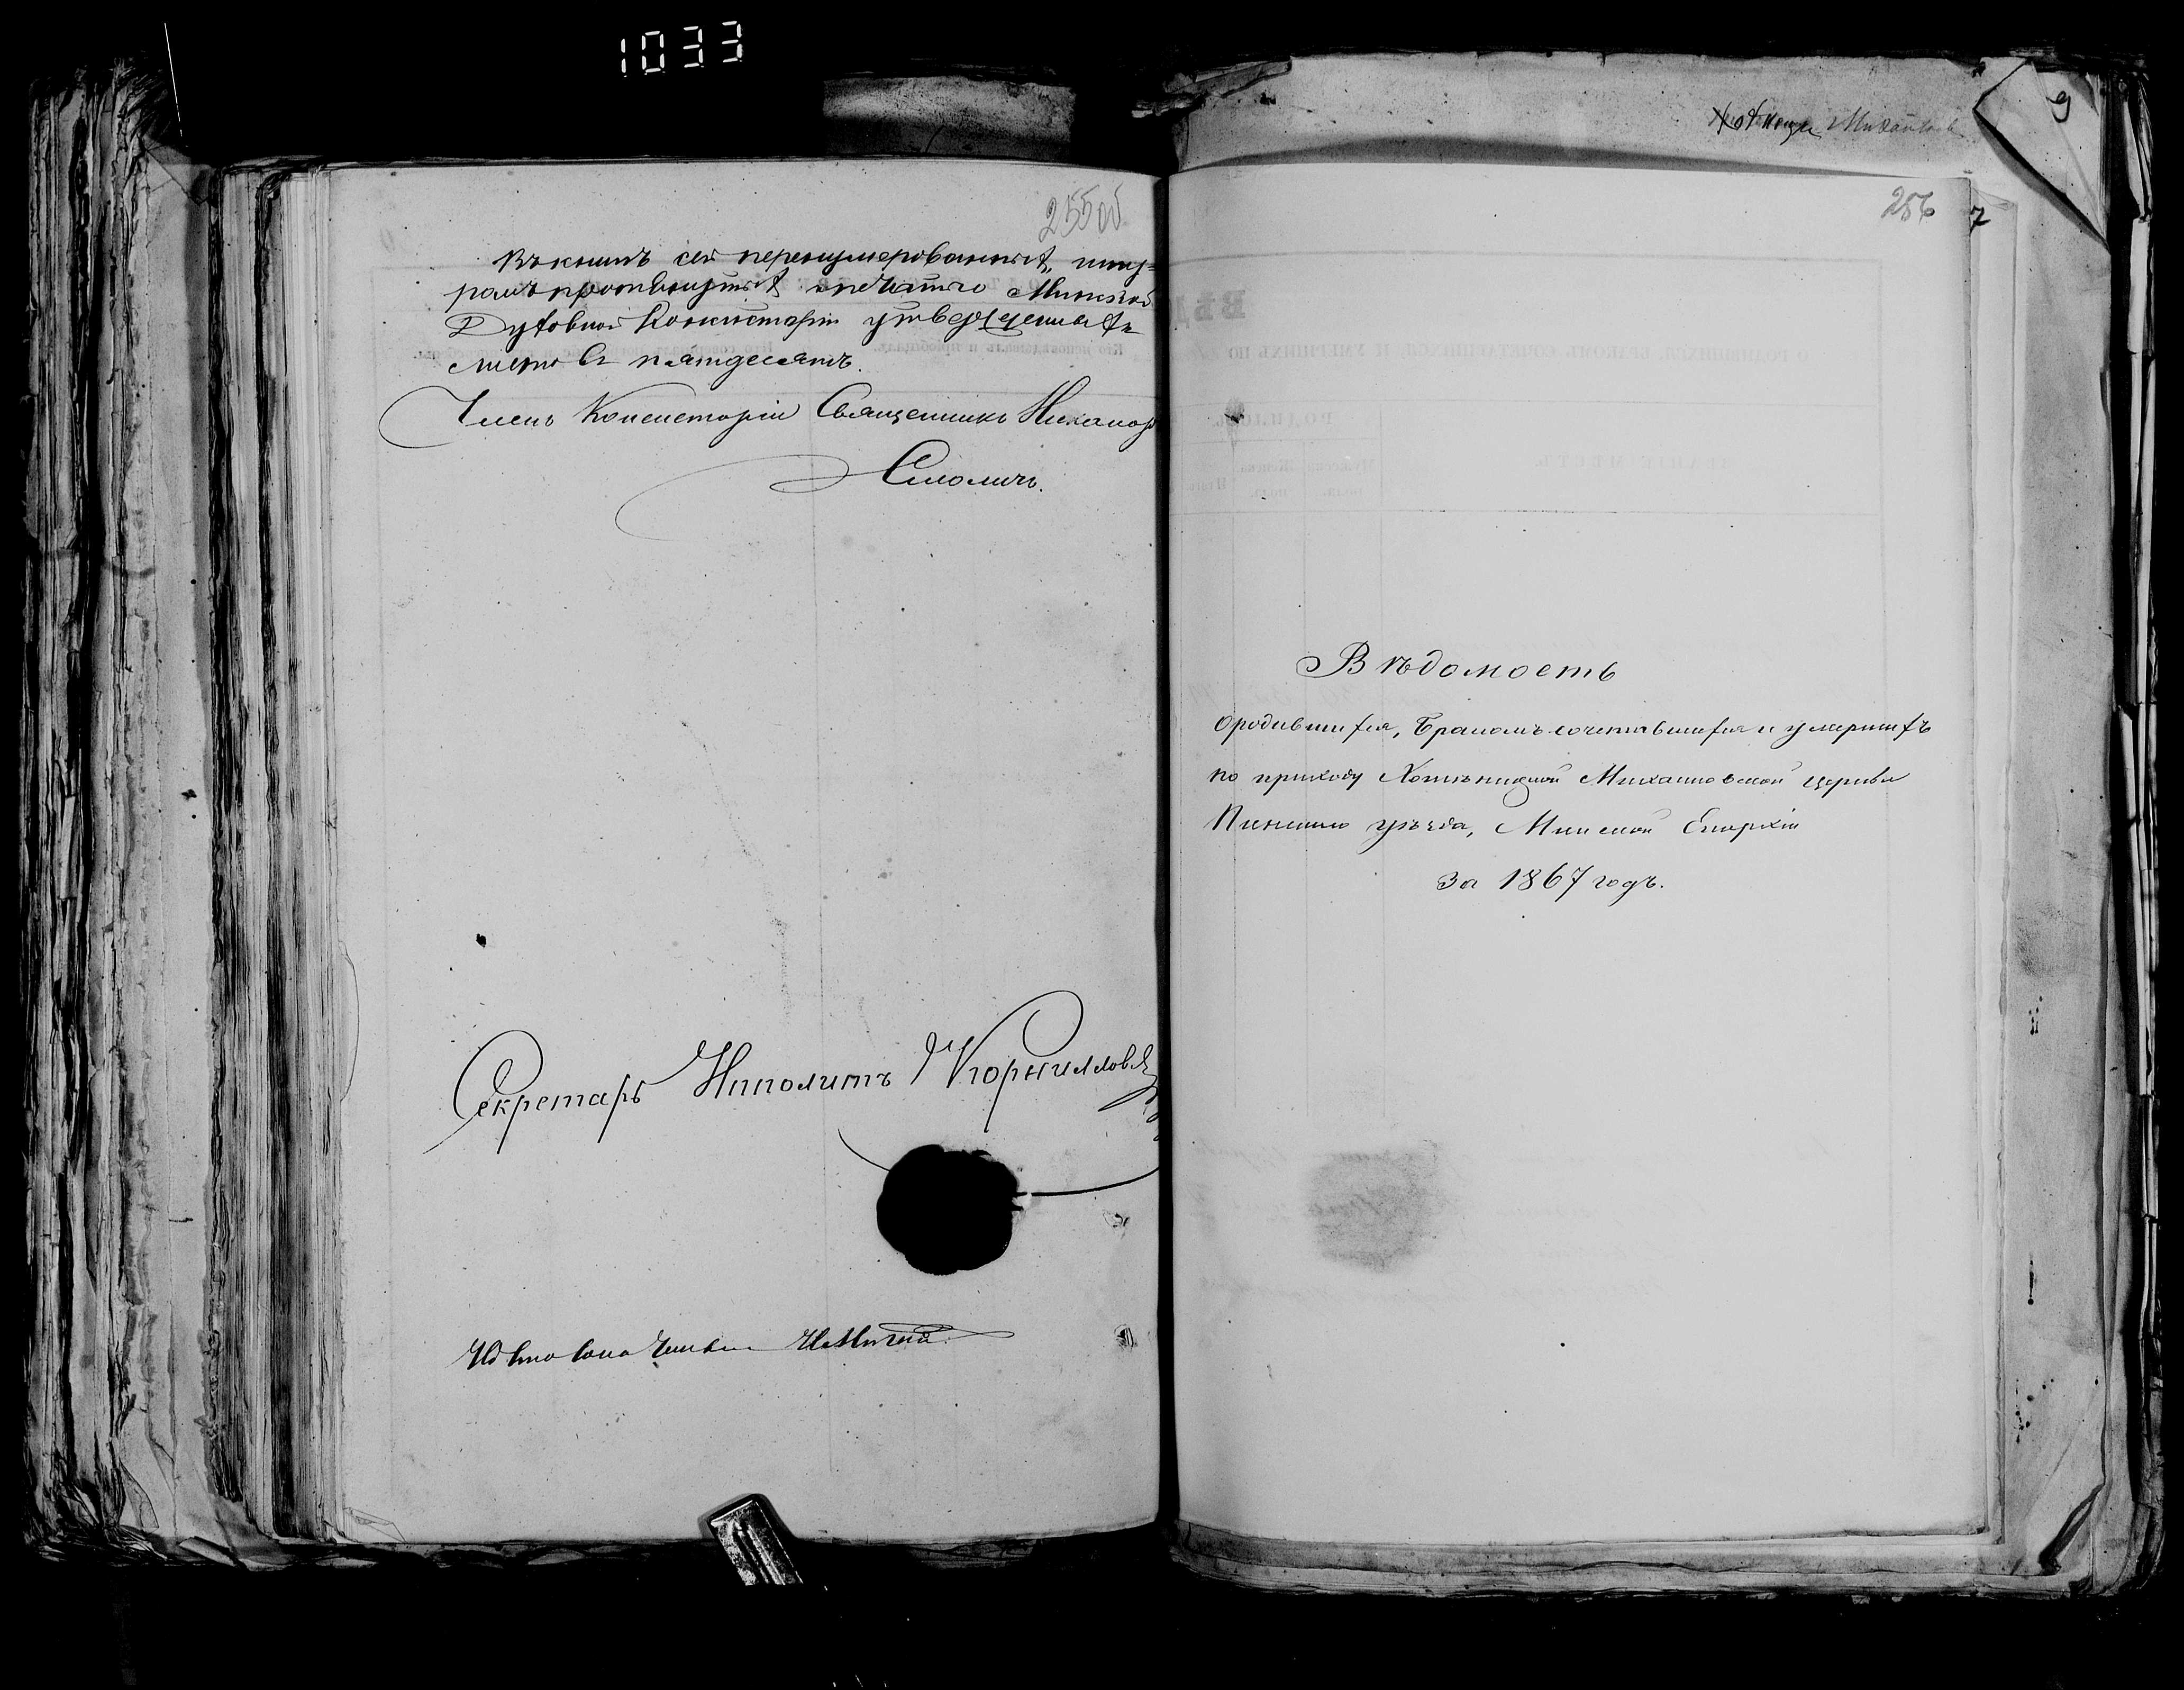 1033
255об
Въ книгѣ сей перенумерованныхъ, шну-
ромъ протянутыхъ и печатью Минской
Духовной Консисторіи утвержденныхъ
листовъ пятдесятъ.
Членъ Консисторіи Священникъ Никаноръ
Смоличъ.
Секретарь Ипполитъ Корниллов
256
7
9
Вѣдомость
о родившихся, бракомъ сочетавшихся и умершихъ
по приходу Хотыницкой Михайловской церкви
Пинскаго уѣзда, Минской Епархіи
за 1867 годъ.